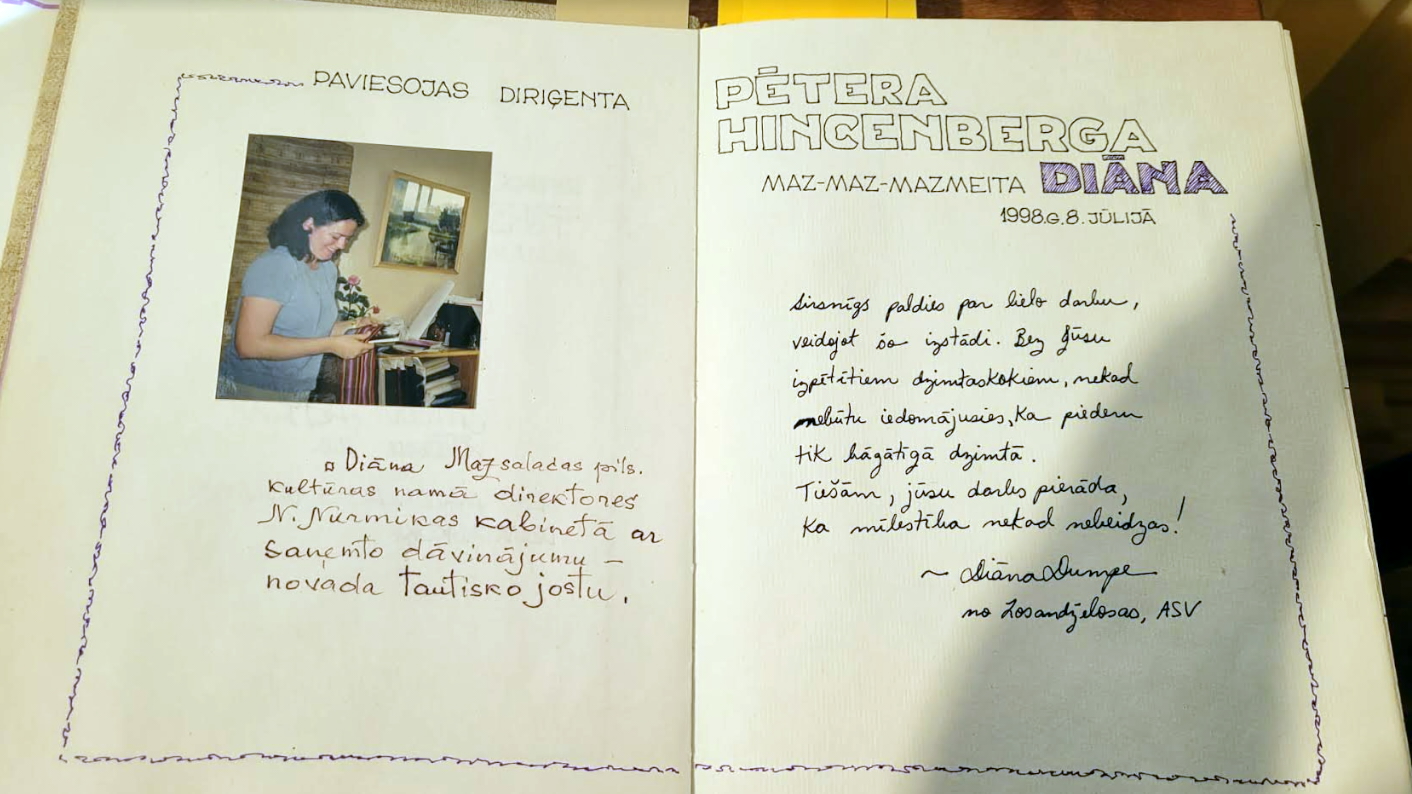 PAVIESOJAS DIRIĢENTA
¤ Diāna Mazsalacas pils.
kultūras namā direktores
N. Nurmikas kabinetā ar
saņemto dāvinājumu –
novada tautisko jostu.
PĒTERA
HINCENBERGA
MAZ-MAZ-MAZMEITA DIĀNA
1998.G.8. JŪLIJĀ
Sirsnīgs paldies par lielo darbu,
veidojot šo izstādi. Bez Jūsu
izpētītiem dzimtaskokiem, nekad
nebūtu iedomājusies, ka piederu
tik bagātīgā dzimtā.
Tiešām, jūsu darbs pierāda,
ka mīlestība nekad nebeidzas!
~ Diāna Dumpe
no Losandželosas, ASV